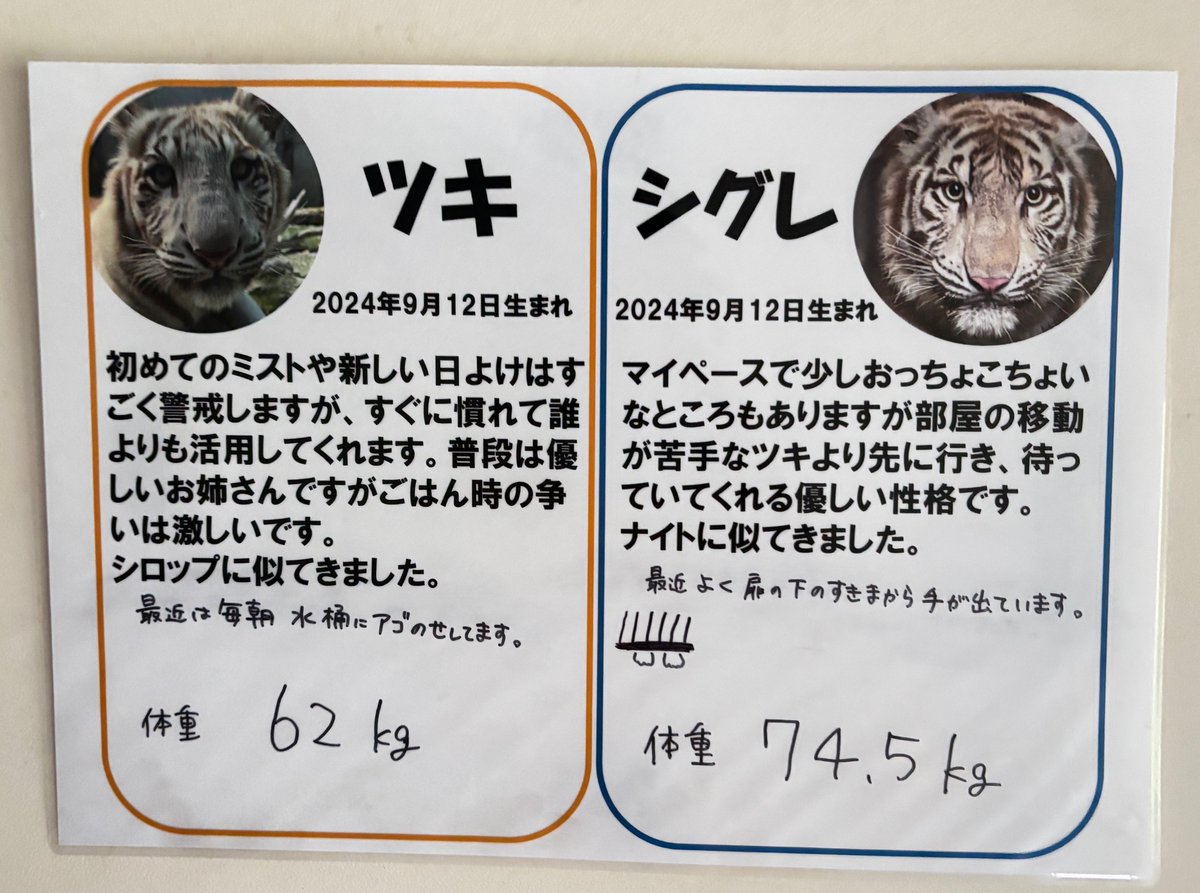 ツキ
2024年9月12日生まれ
初めてのミストや新しい日よけはす
ごく警戒しますが、すぐに慣れて誰
よりも活用してくれます。普段は優
しいお姉さんですがごはん時の争
いは激しいです。
シロップに似てきました。
最近は毎朝 水桶にアゴのせしてます。
体重 62 kg
シグレ
2024年9月12日生まれ
マイペースで少しおっちょこちょい
なところもありますが部屋の移動
が苦手なツキより先に行き、待っ
ていてくれる優しい性格です。
ナイトに似てきました。
最近 よく 扉の下のすきまから 手が出ています。
体重 74.5 kg